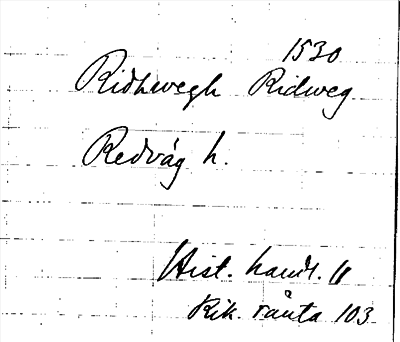 1530
Ridhvegh Ridweg
Redväg h.
Hist. handl. 11
Rik. ränta 103